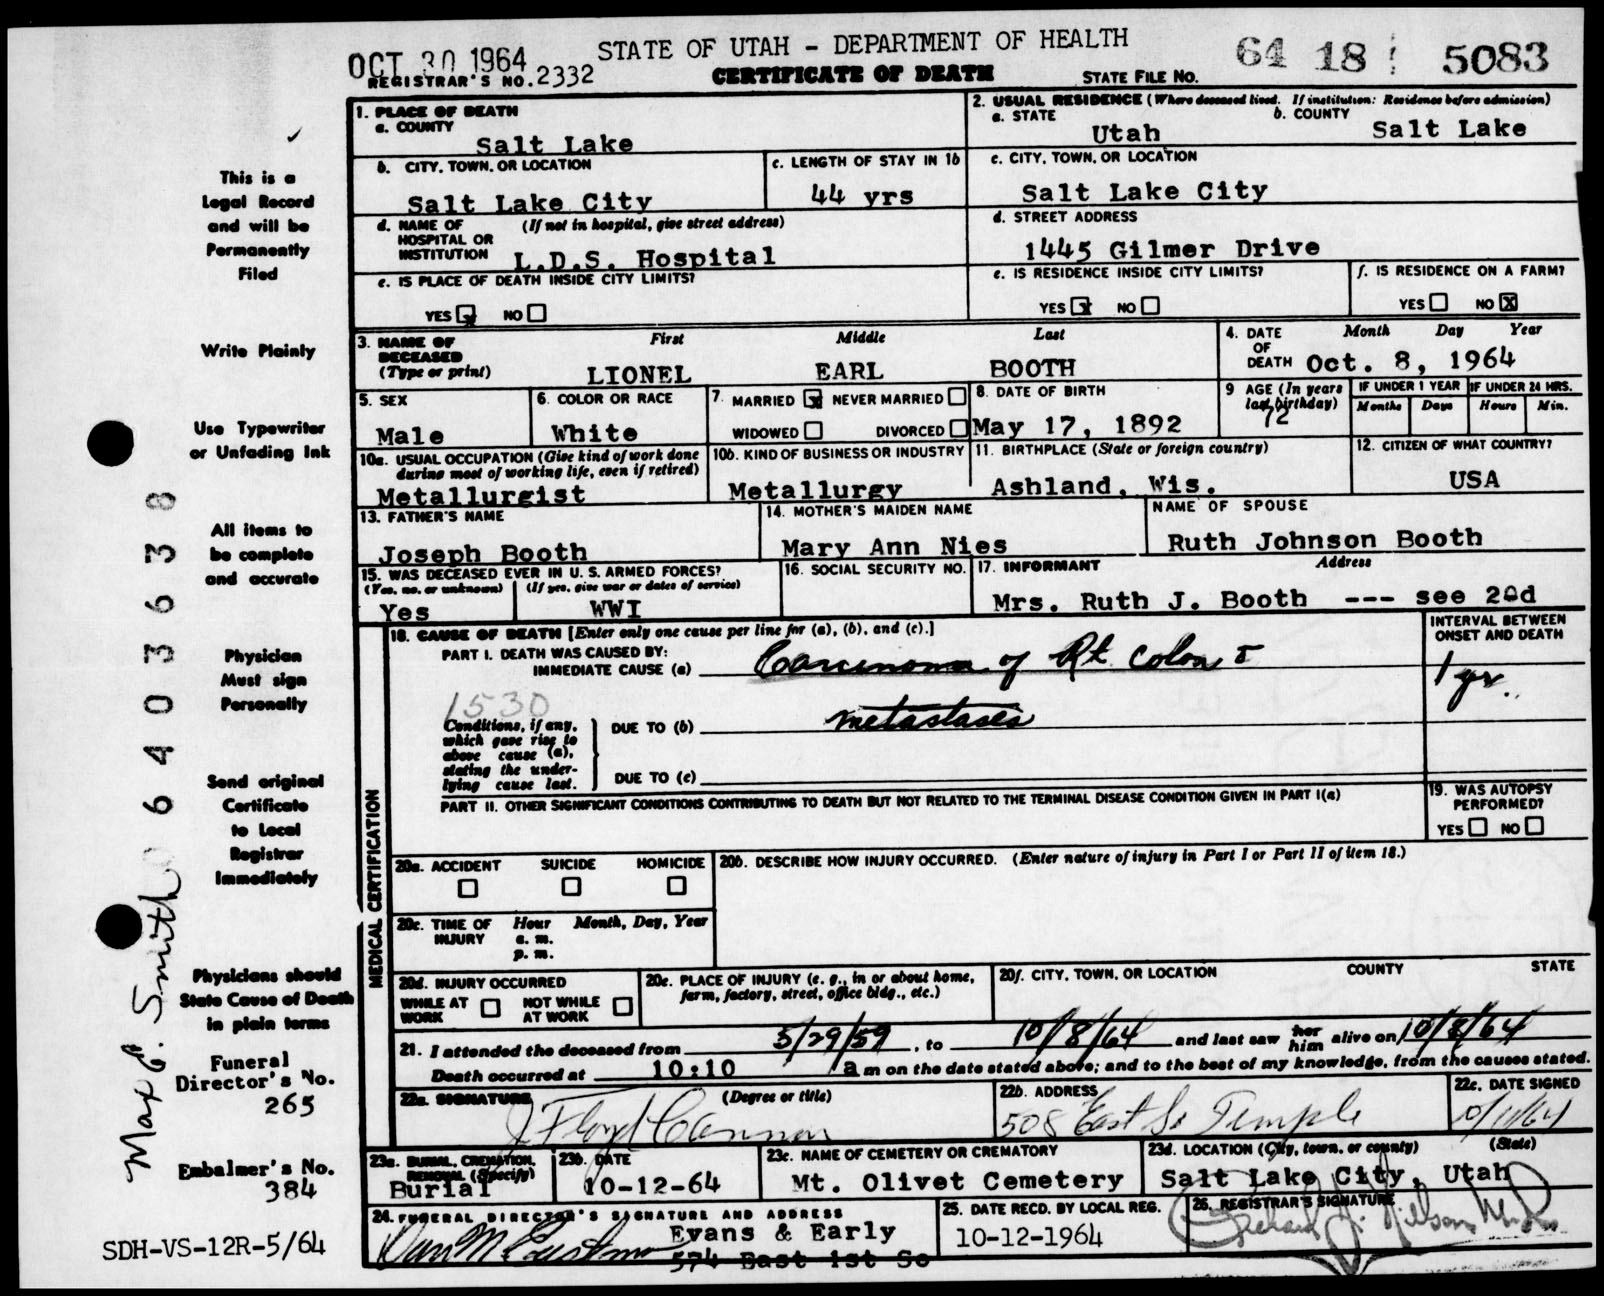 OCT 30 1964
STATE OF UTAH - DEPARTMENT OF HEALTH
REGISTRAR'S NO. 2332
CERTIFICATE OF DEATH
STATE FILE NO. 64 18 5083
1. PLACE OF DEATH
a. COUNTY
Salt Lake
2. USUAL RESIDENCE (Where deceased lived. If institution: Residence before admission)
a. STATE
Utah
b. COUNTY
Salt Lake
b. CITY, TOWN, OR LOCATION
Salt Lake City
c. LENGTH OF STAY IN 1b
44 yrs
c. CITY, TOWN, OR LOCATION
Salt Lake City
d. NAME OF HOSPITAL OR INSTITUTION
(If not in hospital, give street address)
L.D.S. Hospital
d. STREET ADDRESS
1445 Gilmer Drive
e. IS PLACE OF DEATH INSIDE CITY LIMITS?
YES x NO
e. IS RESIDENCE INSIDE CITY LIMITS?
YES x NO
f. IS RESIDENCE ON A FARM?
YES NO x
3. NAME OF DECEASED (Type or print)
First Middle Last
LIONEL EARL BOOTH
4. DATE OF DEATH
Month Day Year
Oct. 8, 1964
5. SEX
Male
6. COLOR OR RACE
White
7. MARRIED x NEVER MARRIED
WIDOWED DIVORCED
8. DATE OF BIRTH
May 17, 1892
9 AGE (In years last birthday)
72
IF UNDER 1 YEAR
Months Days
IF UNDER 24 HRS.
Hours Min.
10a. USUAL OCCUPATION (Give kind of work done during most of working life, even if retired)
Metallurgist
10b. KIND OF BUSINESS OR INDUSTRY
Metallurgy
11. BIRTHPLACE (State or foreign country)
Ashland, Wis.
12. CITIZEN OF WHAT COUNTRY?
USA
13. FATHER'S NAME
Joseph Booth
14. MOTHER'S MAIDEN NAME
Mary Ann Nies
NAME OF SPOUSE
Ruth Johnson Booth
15. WAS DECEASED EVER IN U. S. ARMED FORCES?
(Yes, no, or unknown) (If yes, give war or dates of service)
Yes WWI
16. SOCIAL SECURITY NO.
17. INFORMANT Address
Mrs. Ruth J. Booth --- see 2d
MEDICAL CERTIFICATION
18. CAUSE OF DEATH [Enter only one cause per line for (a), (b), and (c).]
INTERVAL BETWEEN ONSET AND DEATH
PART I. DEATH WAS CAUSED BY:
IMMEDIATE CAUSE (a) Carcinoma of Rt colon
1 yr.
1530
Conditions, if any, which gave rise to above cause (a), stating the underlying cause last.
DUE TO (b) metastases
DUE TO (c)
PART II. OTHER SIGNIFICANT CONDITIONS CONTRIBUTING TO DEATH BUT NOT RELATED TO THE TERMINAL DISEASE CONDITION GIVEN IN PART I(a)
19. WAS AUTOPSY PERFORMED?
YES NO
20a. ACCIDENT SUICIDE HOMICIDE
20b. DESCRIBE HOW INJURY OCCURRED. (Enter nature of injury in Part I or Part II of item 18.)
20c. TIME OF INJURY
Hour Month, Day, Year
a. m.
p. m.
20d. INJURY OCCURRED
WHILE AT WORK NOT WHILE AT WORK
20e. PLACE OF INJURY (e. g., in or about home, farm, factory, street, office bldg., etc.)
20f. CITY, TOWN, OR LOCATION COUNTY STATE
21. I attended the deceased from 5/29/59, to 10/8/64 and last saw her him alive on 10/8/64
Death occurred at 10:10 a m on the date stated above; and to the best of my knowledge, from the causes stated.
22a. SIGNATURE (Degree or title)
J Floyd Cannon
22b. ADDRESS
508 East So Temple
22c. DATE SIGNED
23a. BURIAL, CREMATION, REMOVAL (Specify)
Burial
23b. DATE
10-12-64
23c. NAME OF CEMETERY OR CREMATORY
Mt. Olivet Cemetery
23d. LOCATION (City, town, or county) (State)
Salt Lake City, Utah
24. FUNERAL DIRECTOR'S SIGNATURE AND ADDRESS
Evans & Early
574 East 1st So
25. DATE RECD. BY LOCAL REG.
10-12-1964
26. REGISTRAR'S SIGNATURE
This is a
Legal Record
and will be
Permanently
Filed
Write Plainly
Use Typewriter
or Unfading Ink
All items to
be complete
and accurate
Physician
Must sign
Personally
Send original
Certificate
to Local
Registrar
Immediately
Physicians should
State Cause of Death
in plain terms
Funeral
Director's No.
265
Embalmer's No.
384
SDH-VS-12R-5/64
Max E. Smith
064036338